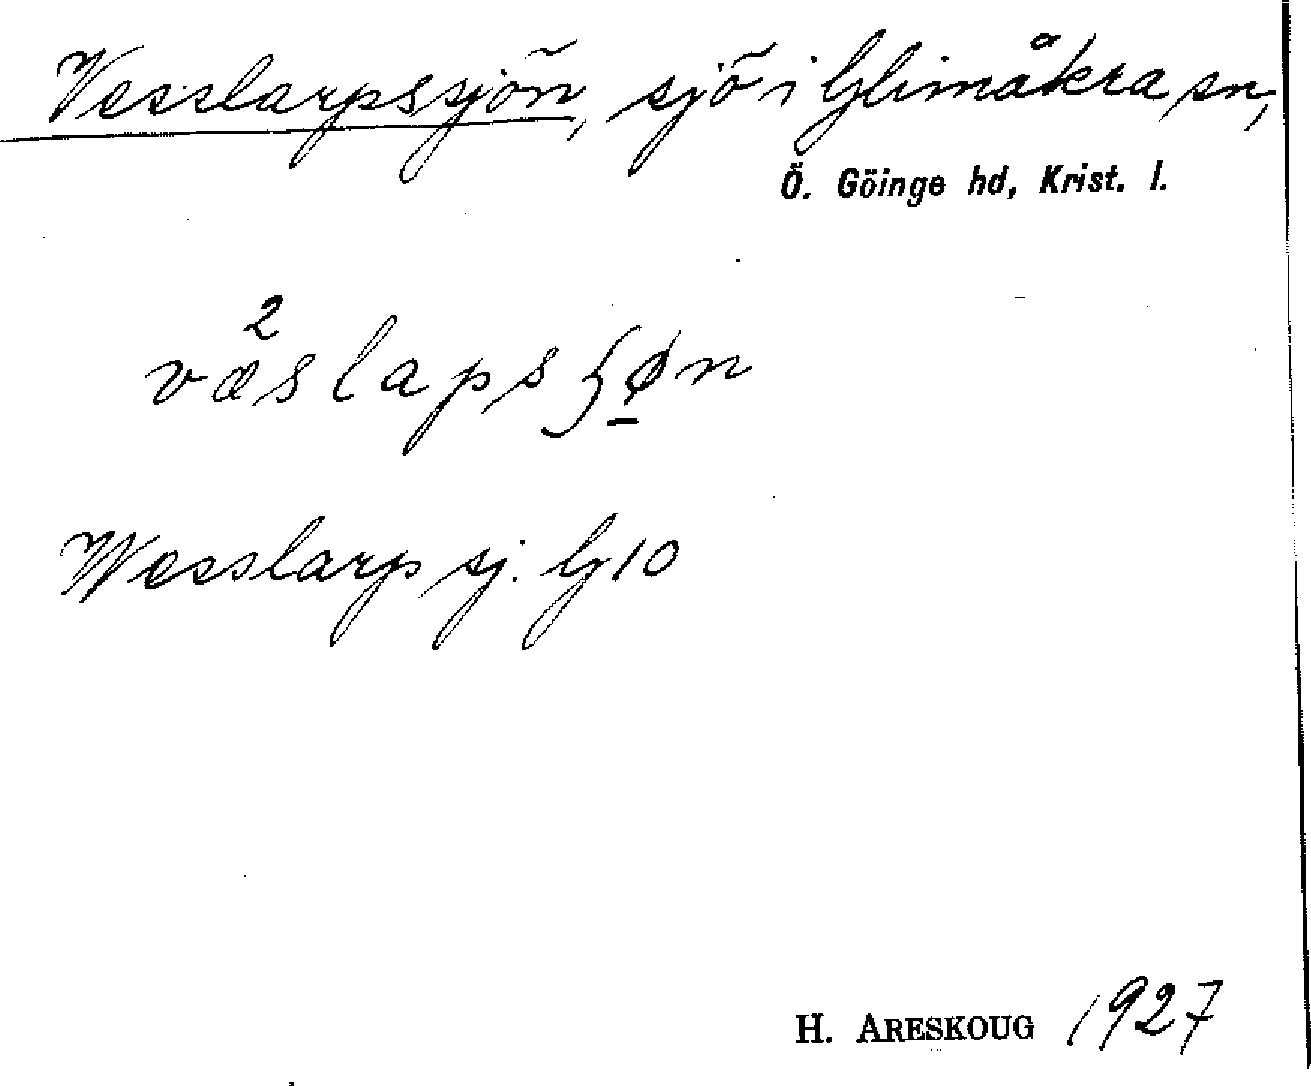 Vesslarpssjön, sjö i Glimåkra sn,
Ö. Göinge hd, Krist. l.
væ²slapsʃø̲n
Wesslarp sj. G10
H. ARESKOUG 1927